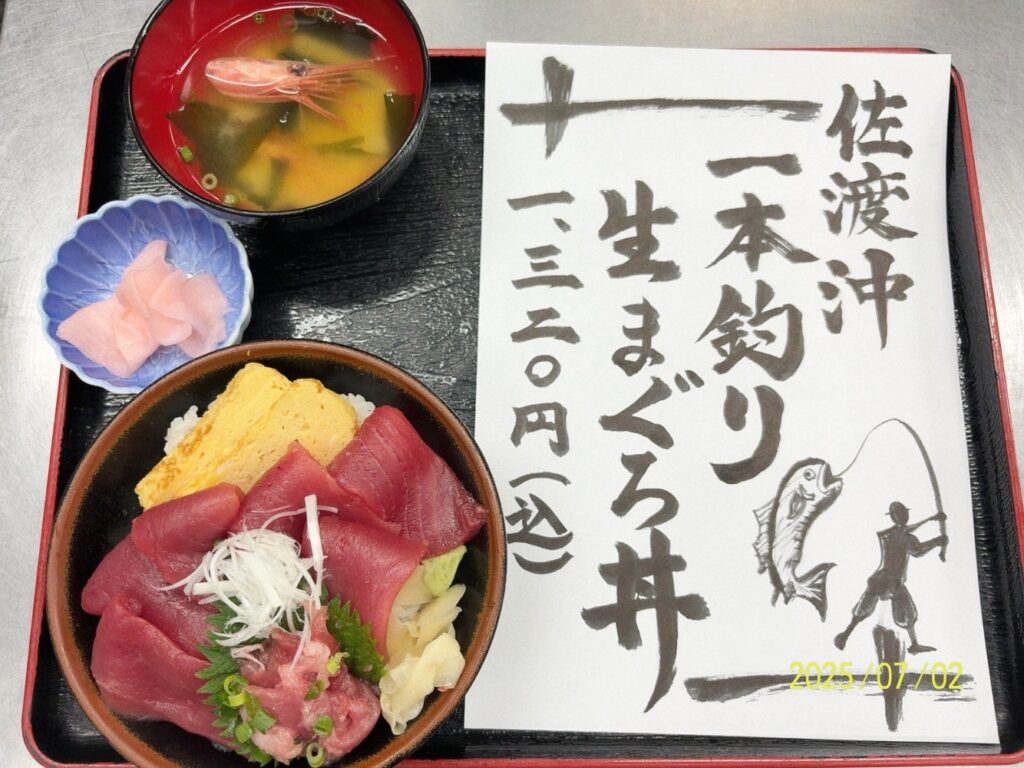 佐渡沖
一本釣り
生まぐろ丼
一、三二〇円(込)
2025/07/02